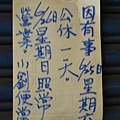 因有事6/5星期六
公休一天。
6/6星期日照常
營業。小劉便當